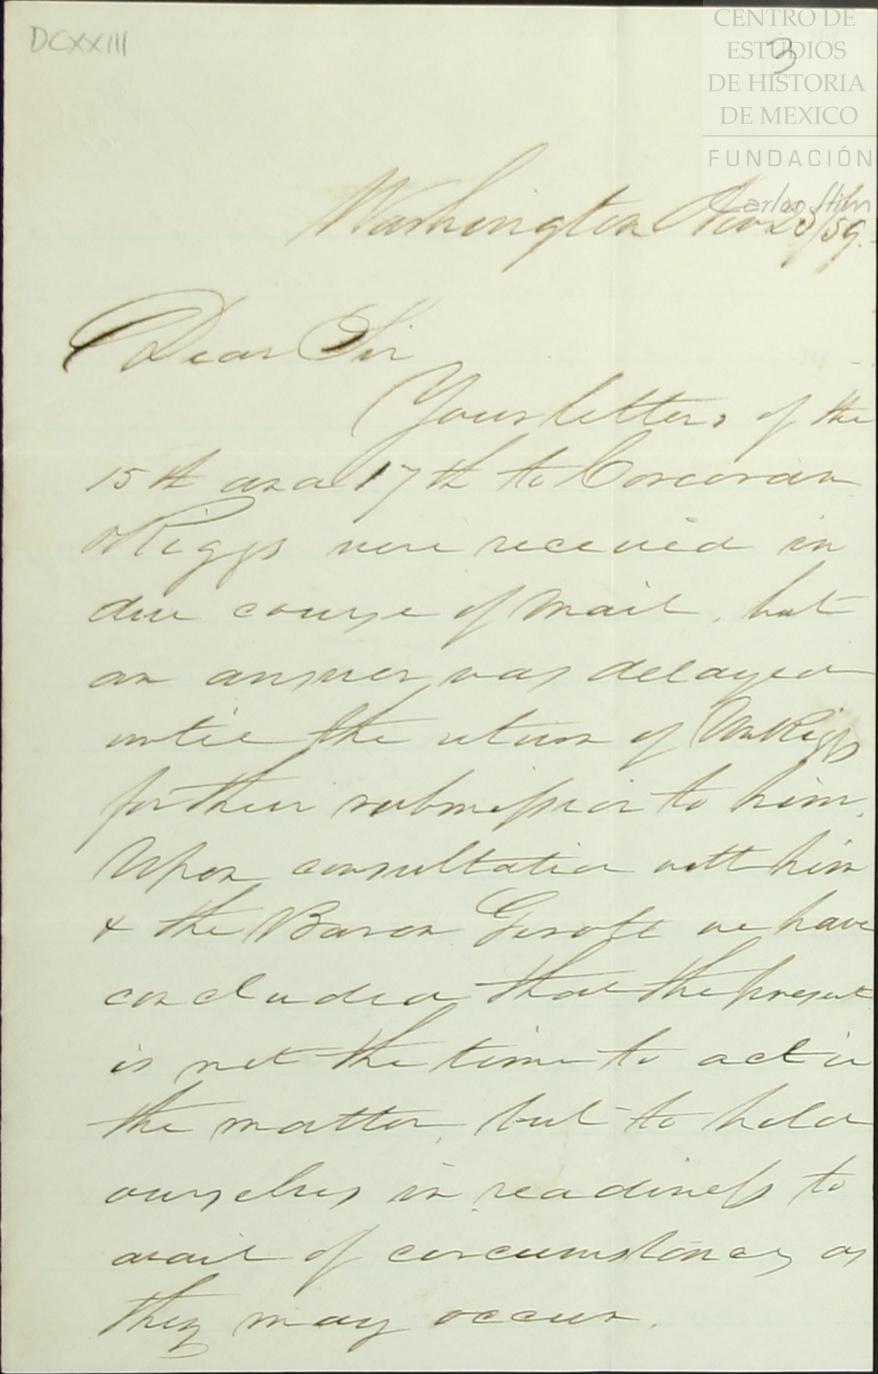 DCXXIII
3
CENTRO DE
ESTUDIOS
DE HISTORIA
DE MEXICO
FUNDACIÓN
Carlos Slim
Washington Nov 23/59.
Dear Sir
Your letters of the
15th and 17th to Corcoran
& Riggs were received in
due course of mail, but
an answer was delayed
until the return of Mr Riggs
for their submission to him.
Upon consultation with him
& the Baron Gerolt we have
concluded that the present
is not the time to act in
the matter, but to hold
ourselves in readiness to
avail of circumstances as
they may occur.